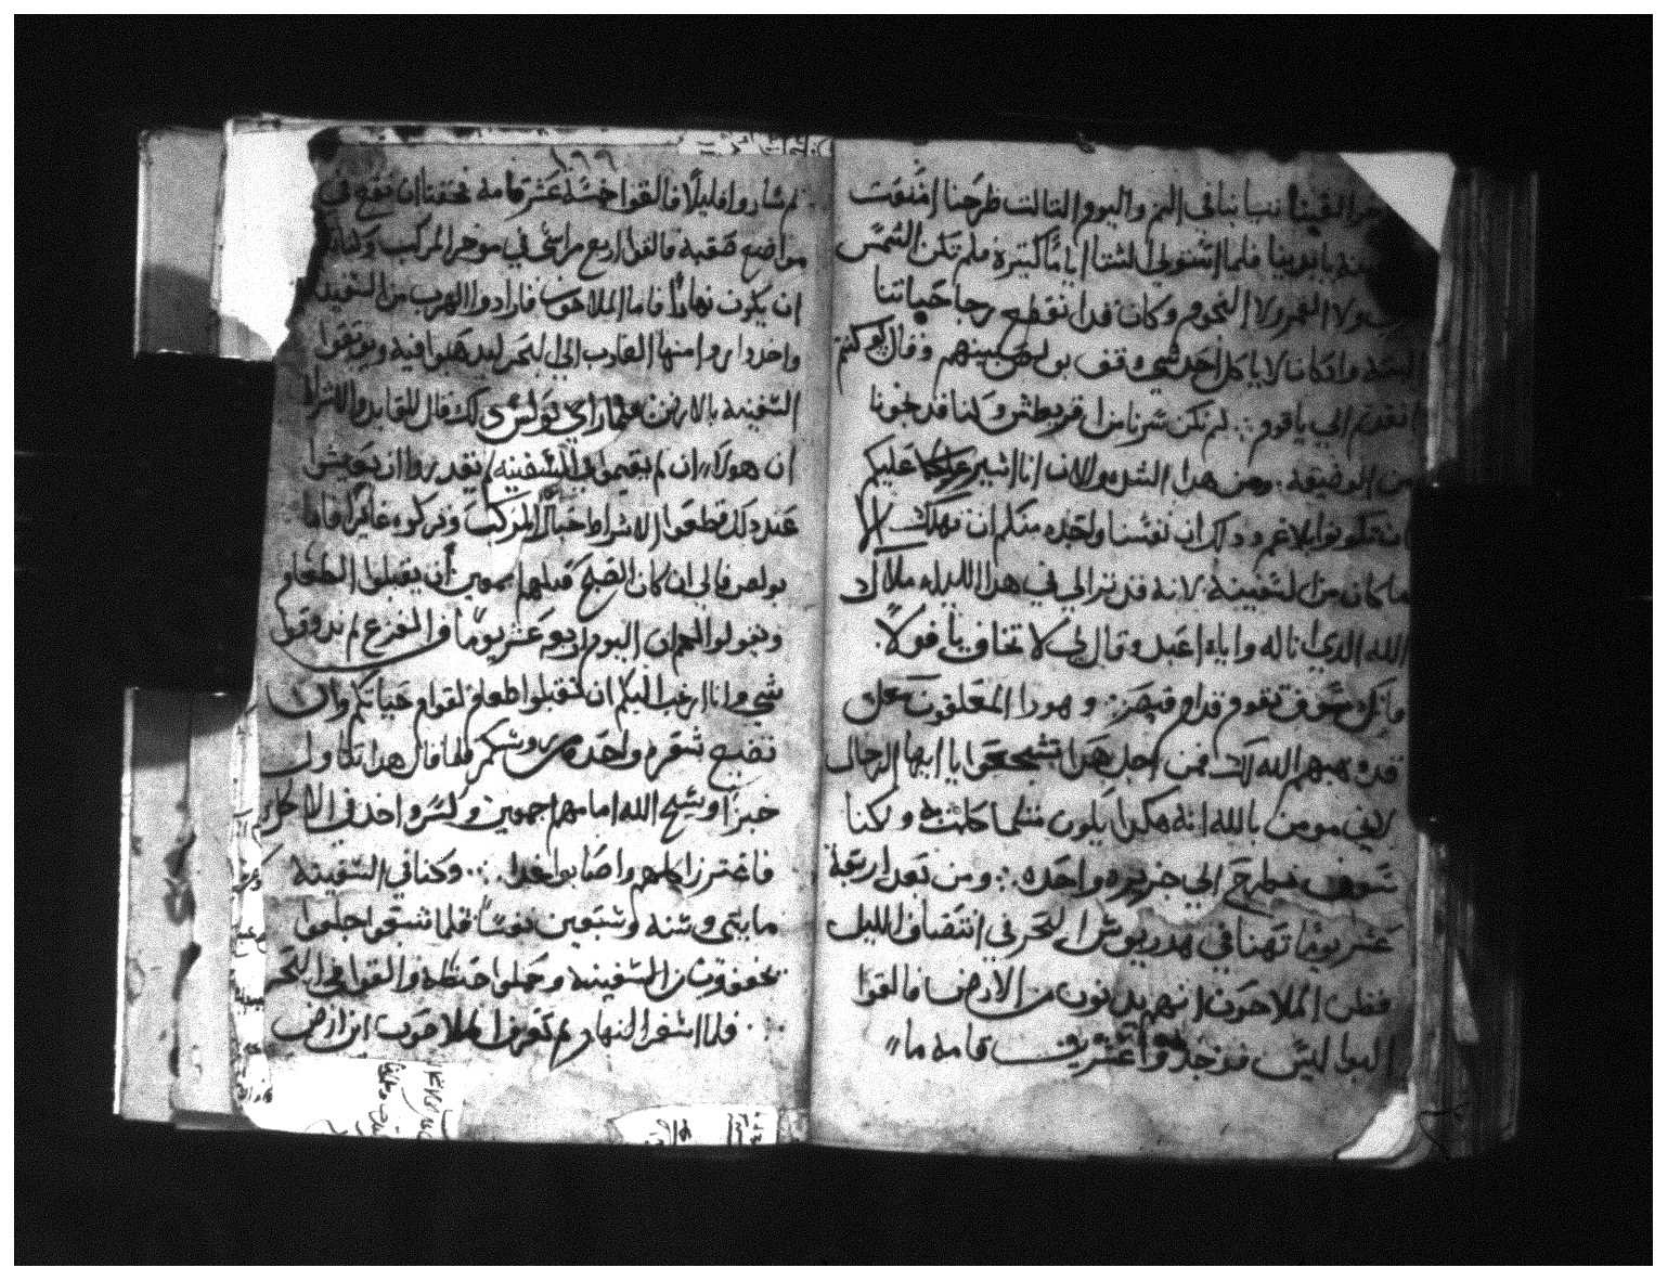 القينا تيابنا في اليم واليوم التالت طرحنا امتعت
بايدينا فلما استولي الشتا اياما كتيره فلم تكن الشمس
ولا القمر ولا النجوم وكان قد انقطع رجا حياتنا
البته واد كان لا ياكل احد شي وقف بولص بينهم وقال لو كنتم
انقدتم الي ياقوم لم نكن سرنا من اقريطش وكنا قد نجونا
من الوضيعه ومن هدا الشر والان انا اشير عليكم
ان تكونوا بلا غم ودلك ان نفسا واحده منكم لن تهلك الا
ما كان من السفينه لانه قد تراالي في هدا الليله ملاك
الله الدي انا له واياه اعبد وقال لي لا تخاف يا فولا
فانك سوف تقوم قدام قيصر وهودا المعلقون معك
قد وهبهم الله لك فمن اجل هدا تشجعوا يا ايها الرجال
لاني مومن بالله انه هكدا يكون متلما كلمت ولكنا
سوف نطرح الي جزيره واحده ومن بعد اربعة
عشر يوما تهنا في هدريوس البحر في انتصاف الليل
فظن الملاحون انهم يدنون من الارض فالقوا
البوالیس فوجدوا عشرين قامه ما
١٦٦
تم ساروا قليلا فالقوا خمسة عشر قامه نخفنا ان نقع في
مواضع صعبه فالقوا اربع مراسي في موخر المركب وكنا
ان يكون نهارا فاما الملاحون فارادوا الهرب من السفينه
واحدروا منها القارب الي البحر ليدهبوا فيه ويوتقوا
السفينه بالارض فلما راي بولس دلك قال للقايد والاشراط
ان هولا ان لم يقيموا في السفينه لم تقدروا ان تعيشوا
عند دلك قطعوا الاشراط حبال المركب وتركوه عايرا فاما
بولص فالي ان كان الصبح قبلهم اجمعين ان يقبلوا الطعام
ويقولوا لهم ان اليوم اربعه عشر يوما من الفزع لم تدوقوا
شي وانا ارغب اليكم ان تقبلوا طعام لقوام حياتكم ولن
تضيع شعره واحده من روسكم فلما قال هدا تناول
خبزا وسبح الله امامهم اجمعين وكسر واخد في الاكل
فاعتزز كلهم واصابوا غدا وكنا في السفينه
مايتي وسته وسبعين نفسا فلما شبعوا جعلوا
يخففون من السفينه وحملوا حنطه والقوا في البحر
فلما اسفر النهار لم تعرف الملاحون اي ارض